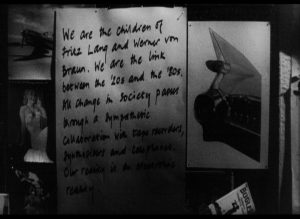 We are the children of
Fritz Lang and Werner von
Braun. We are the link
between the '20s and the '80s.
All change in society passes
through a sympathetic
collaboration via tape recorders,
synthesisers and telephones.
Our reality is an electronic
reality.